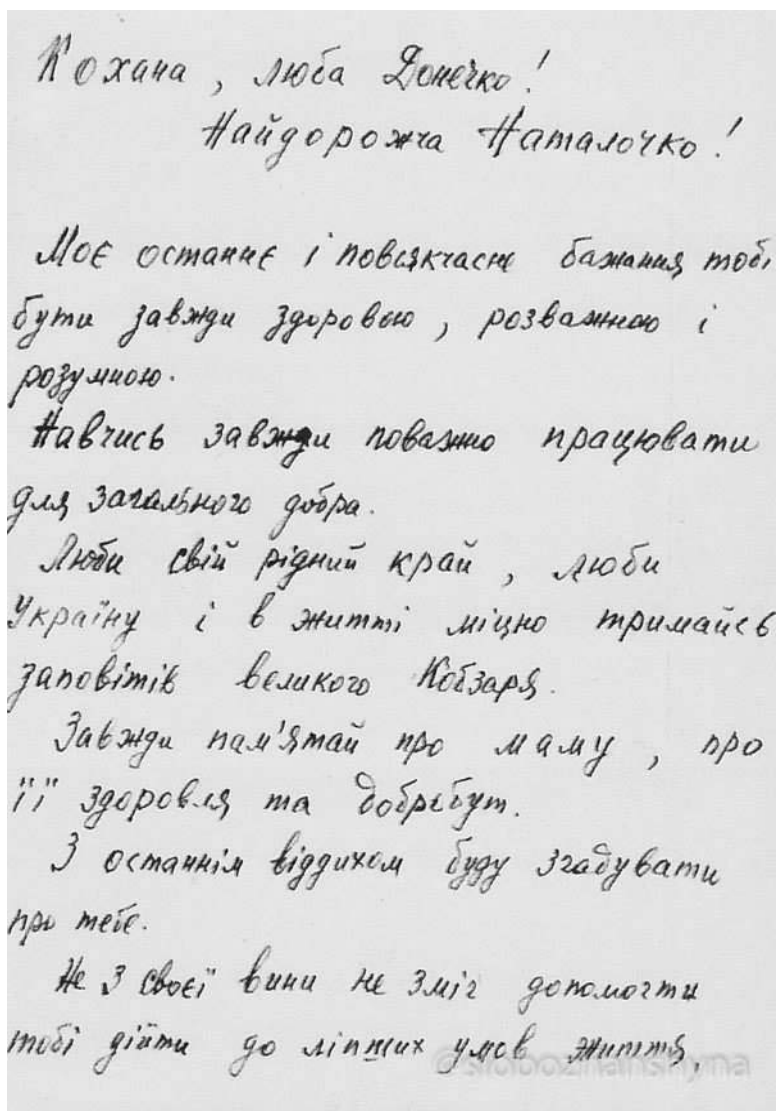 Кохана, люба Донечко!
Найдорожча Наталочко!
Моє останнє і повсякчасне бажання тобі
бути завжди здоровою, розважною і
розумною.
Навчись завжди поважно працювати
для загального добра.
Люби свій рідний край, люби
Україну і в житті міцно тримайсь
заповітів великого Кобзаря.
Завжди пам'ятай про маму, про
її здоровля та добробут.
З останнім віддихом буду згадувати
про тебе.
Не з своєї вини не зміг допомогти
тобі дійти до ліпших умов життя.
©slobozhanshyna